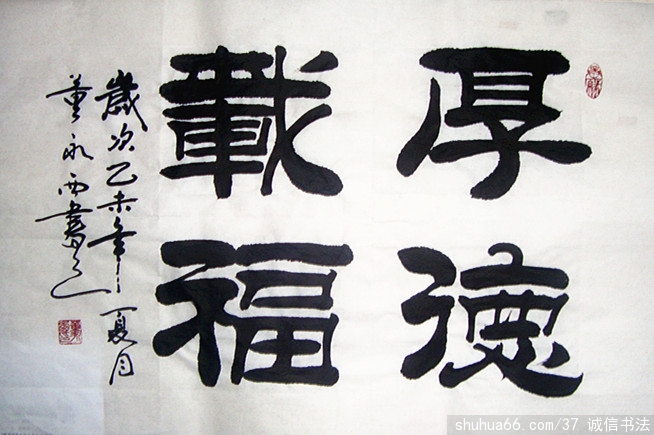 厚德
載福
歲次乙未年夏月
董永西書之
shuhua66.com/37 诚信书法